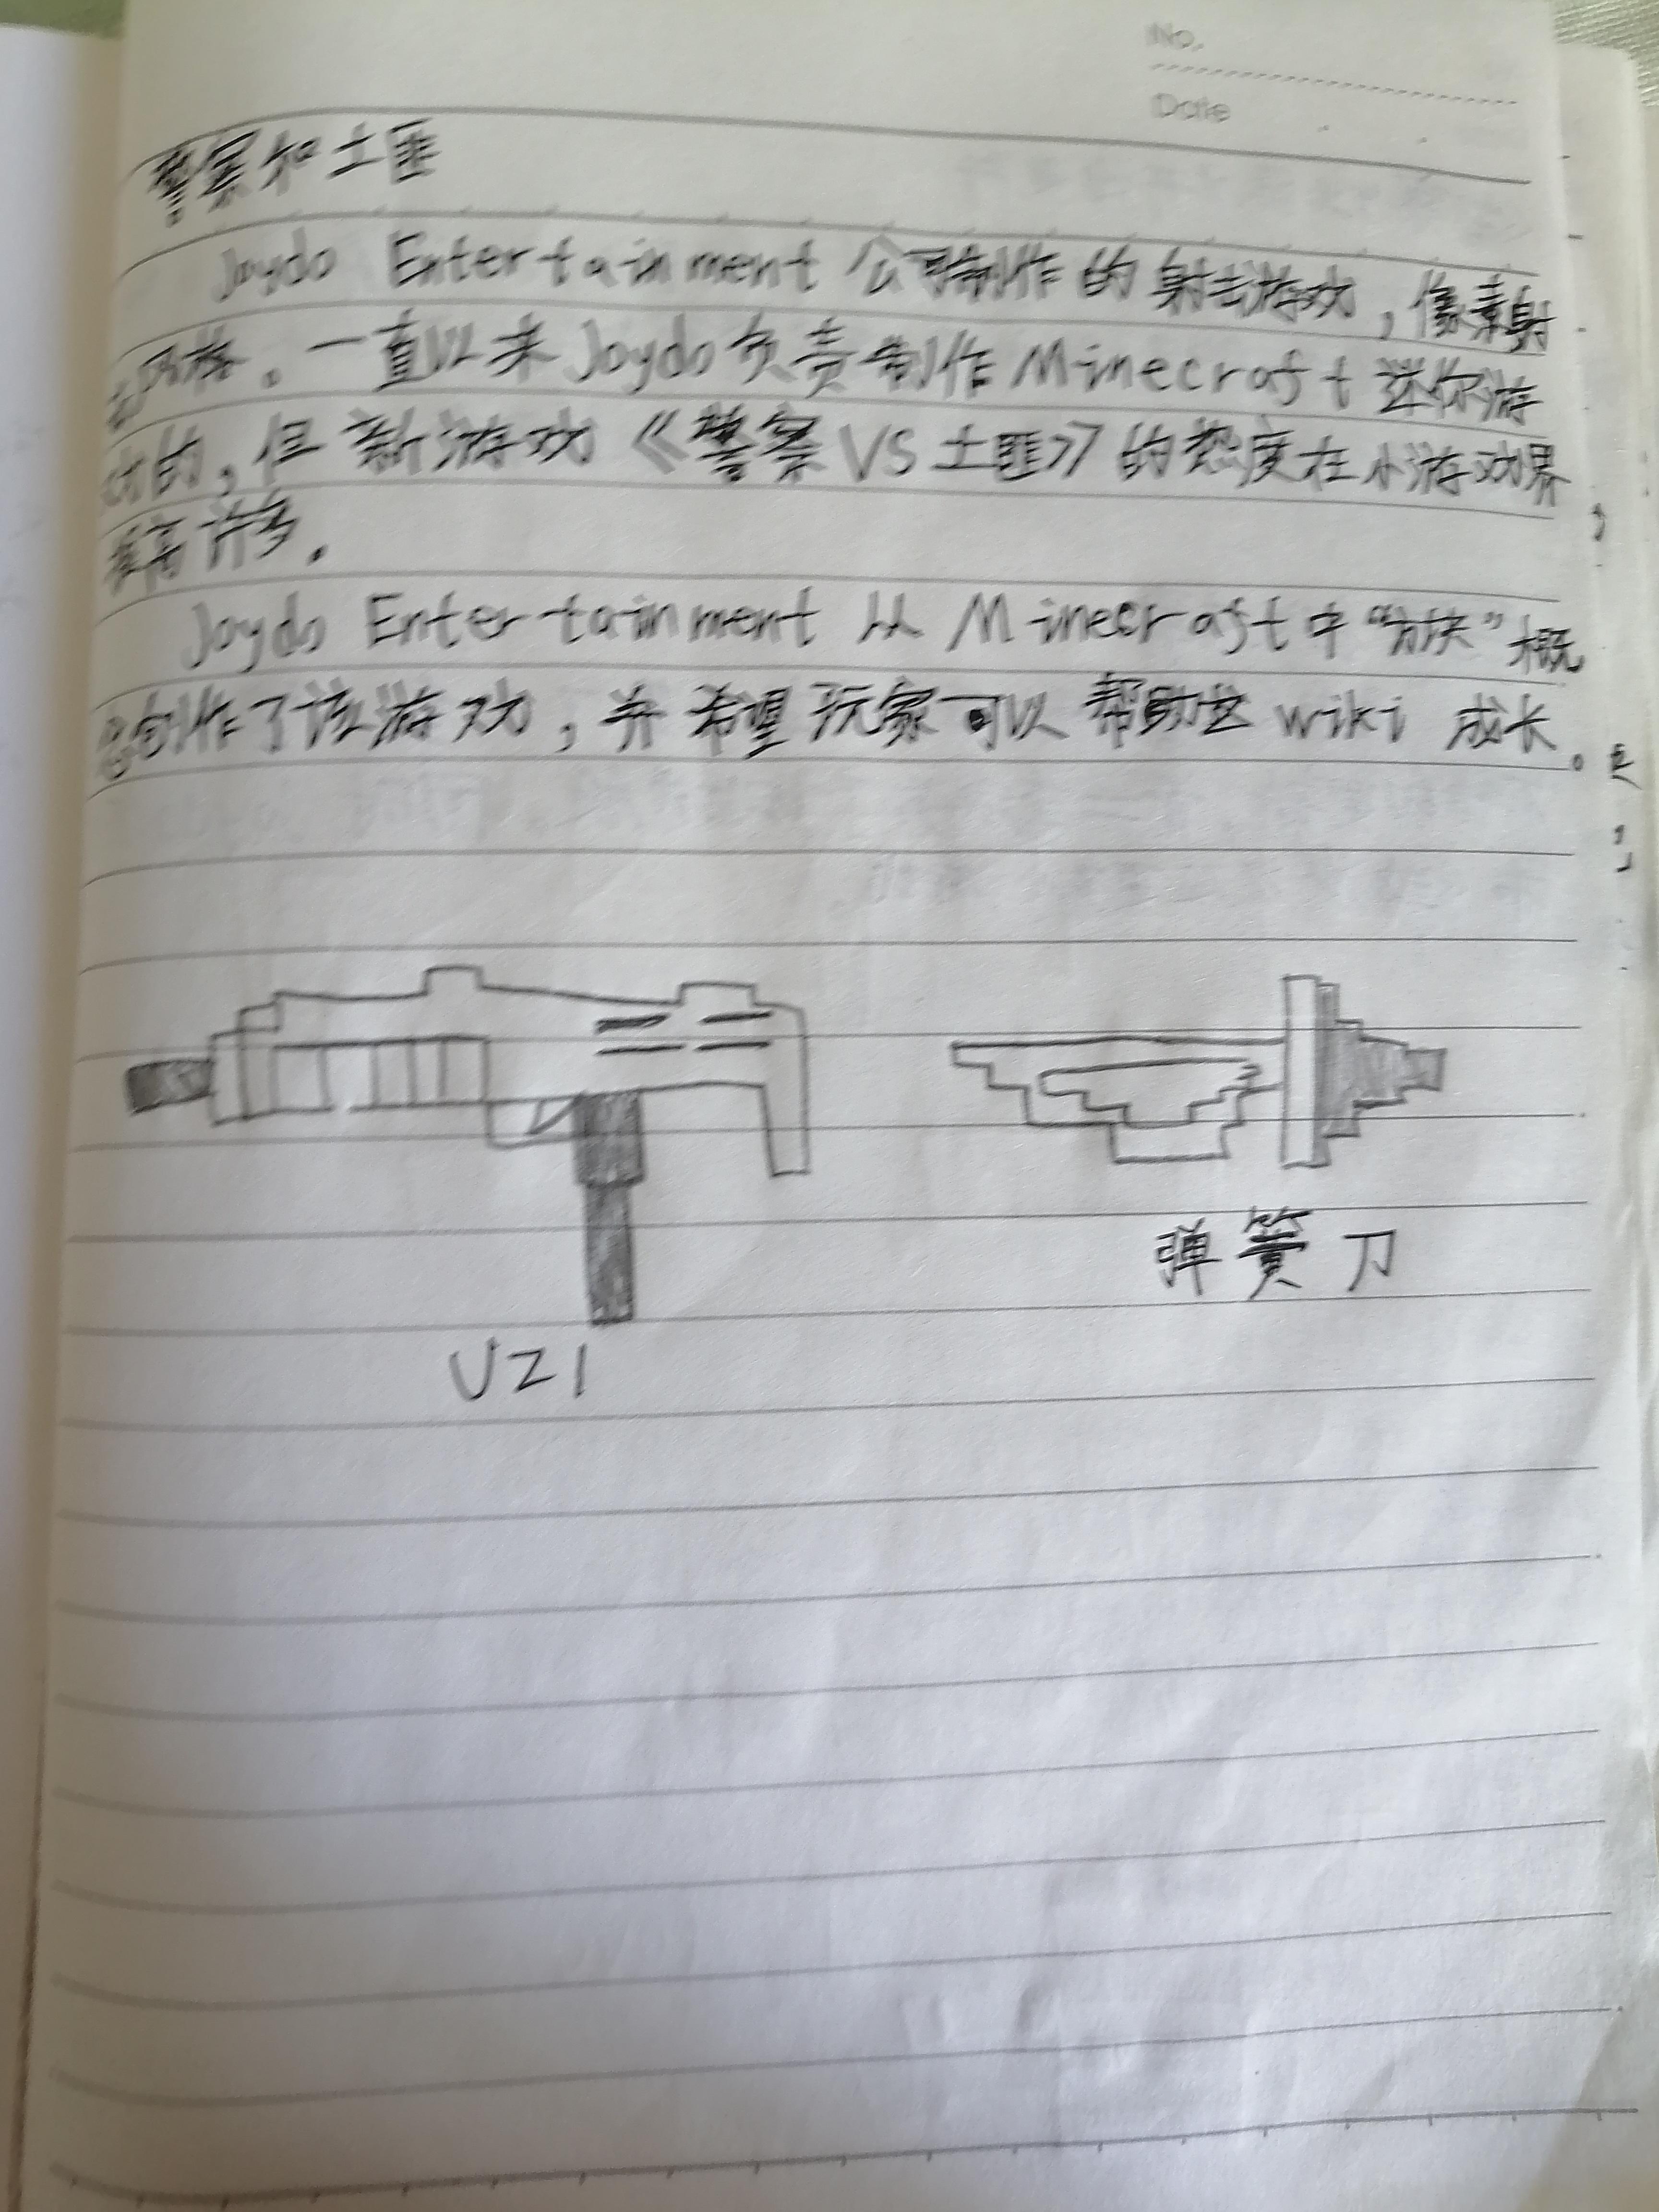 No.
Date
警察和土匪
Joydo Entertainment 公司制作的射击游戏，像素射
击风格。一直以来Joydo负责制作Minecraft迷你游
戏的，但新游戏《警察VS土匪》的热度在小游戏界
提高许多。
Joydo Entertainment 从 Minecraft中“方块”概
念创作了该游戏，并希望玩家可以帮助这wiki成长。
弹簧刀
UZI